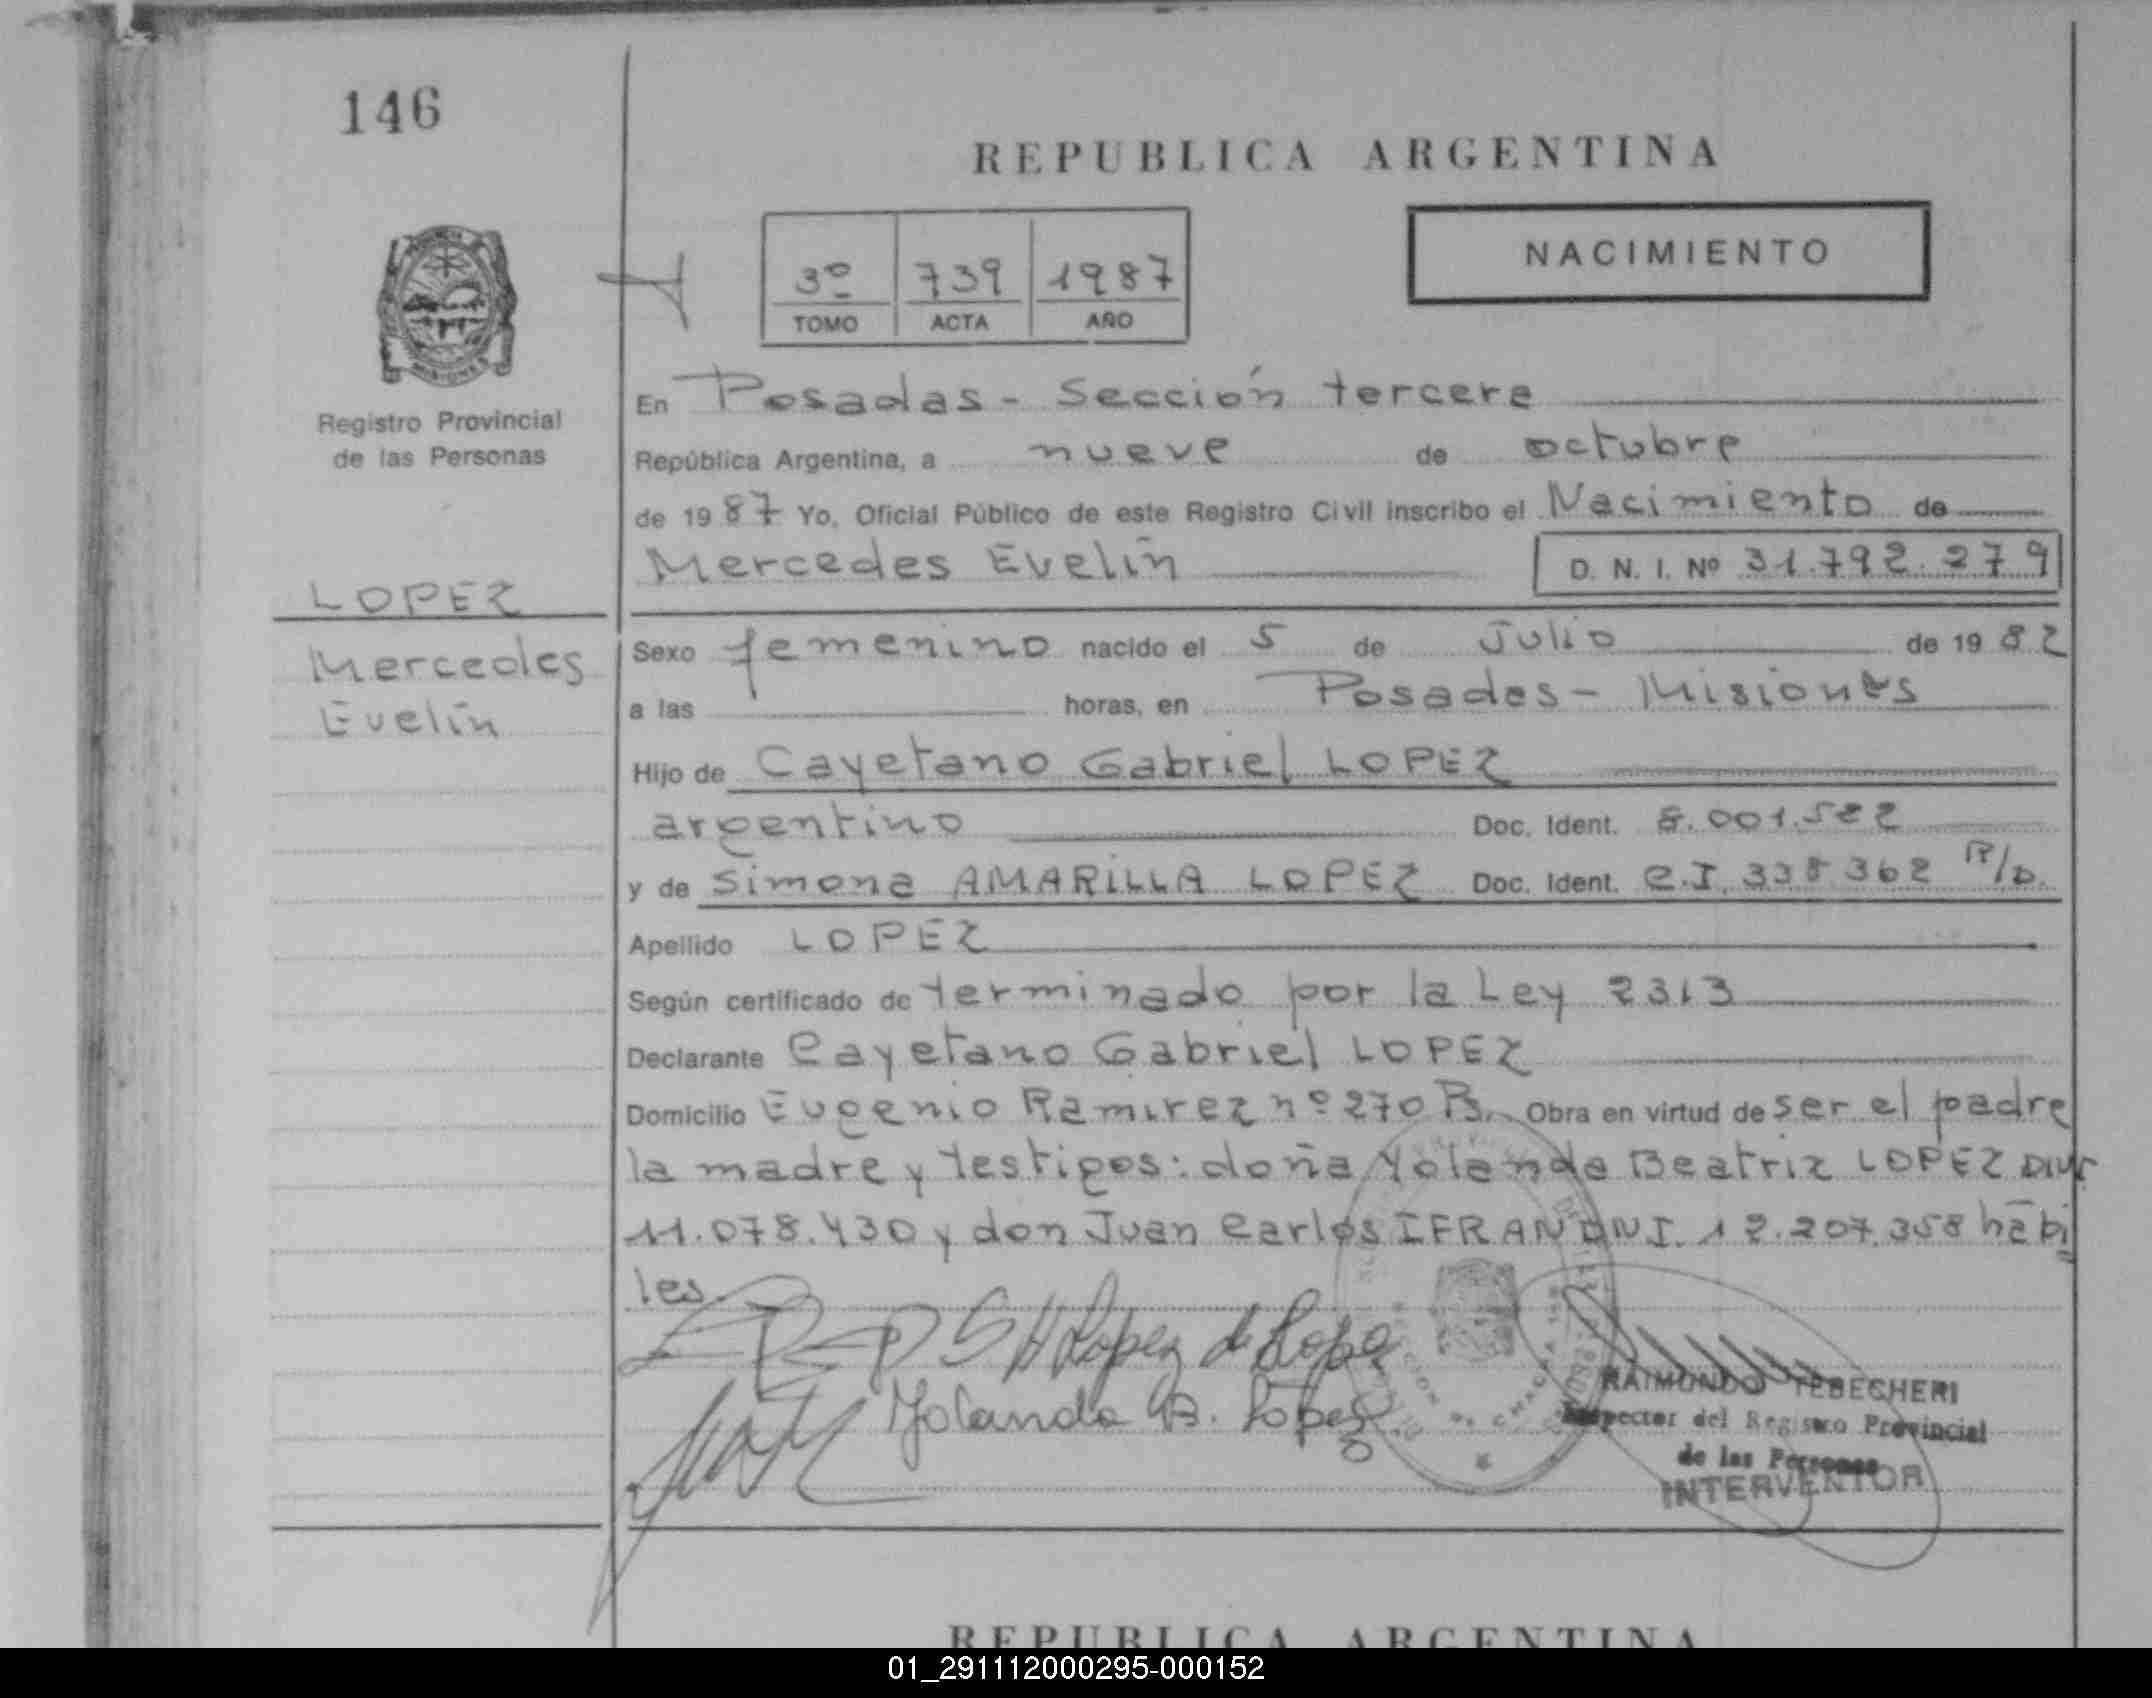 146
REPUBLICA ARGENTINA
NACIMIENTO
3º 739 1987
TOMO ACTA AÑO
Registro Provincial
de las Personas
LOPEZ
Mercedes
Evelin
En Posadas - Sección tercera
República Argentina, a nueve de octubre
de 1987 Yo, Oficial Público de este Registro Civil inscribo el Nacimiento de
Mercedes Evelin D. N. I. Nº 31.792.279
Sexo femenino nacido el 5 de Julio de 1982
a las horas, en Posadas - Misiones
Hijo de Cayetano Gabriel LOPEZ
argentino Doc. Ident. 8.001.522
y de Simona AMARILLA LOPEZ Doc. Ident. C.I. 338.362
Apellido LOPEZ
Según certificado de terminado por la Ley 2313
Declarante Cayetano Gabriel LOPEZ
Domicilio Eugenio Ramirez nº 270 Obra en virtud de ser el padre
la madre y testigos: doña Yolanda Beatriz LOPEZ
11.078.430 y don Juan Carlos IFRAN DNI. 12.207.358 hábi
les.
Lopez de Lopez
Yolanda B. Lopez
RAIMUNDO TEBECHERI
Inspector del Registro Provincial
de las Personas
INTERVENTOR
REPUBLICA ARGENTINA
01_291112000295-000152